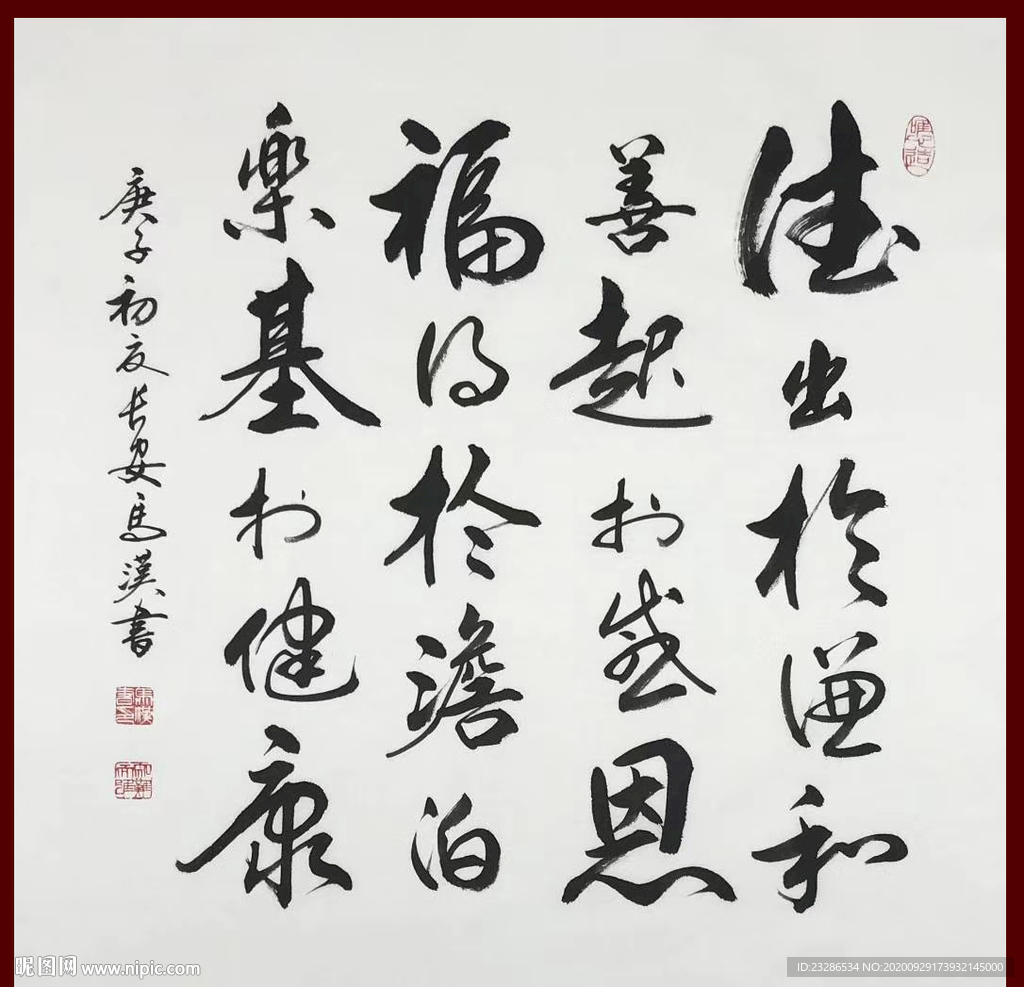 德出於谦和
善起於感恩
福得於澹泊
樂基於健康
庚子初夏长安馬漢書
昵图网 www.nipic.com
ID:23286534 NO:20200929173932145000